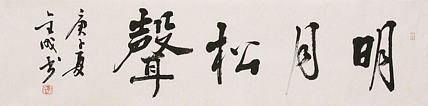 明月松聲
庚子夏
金成書